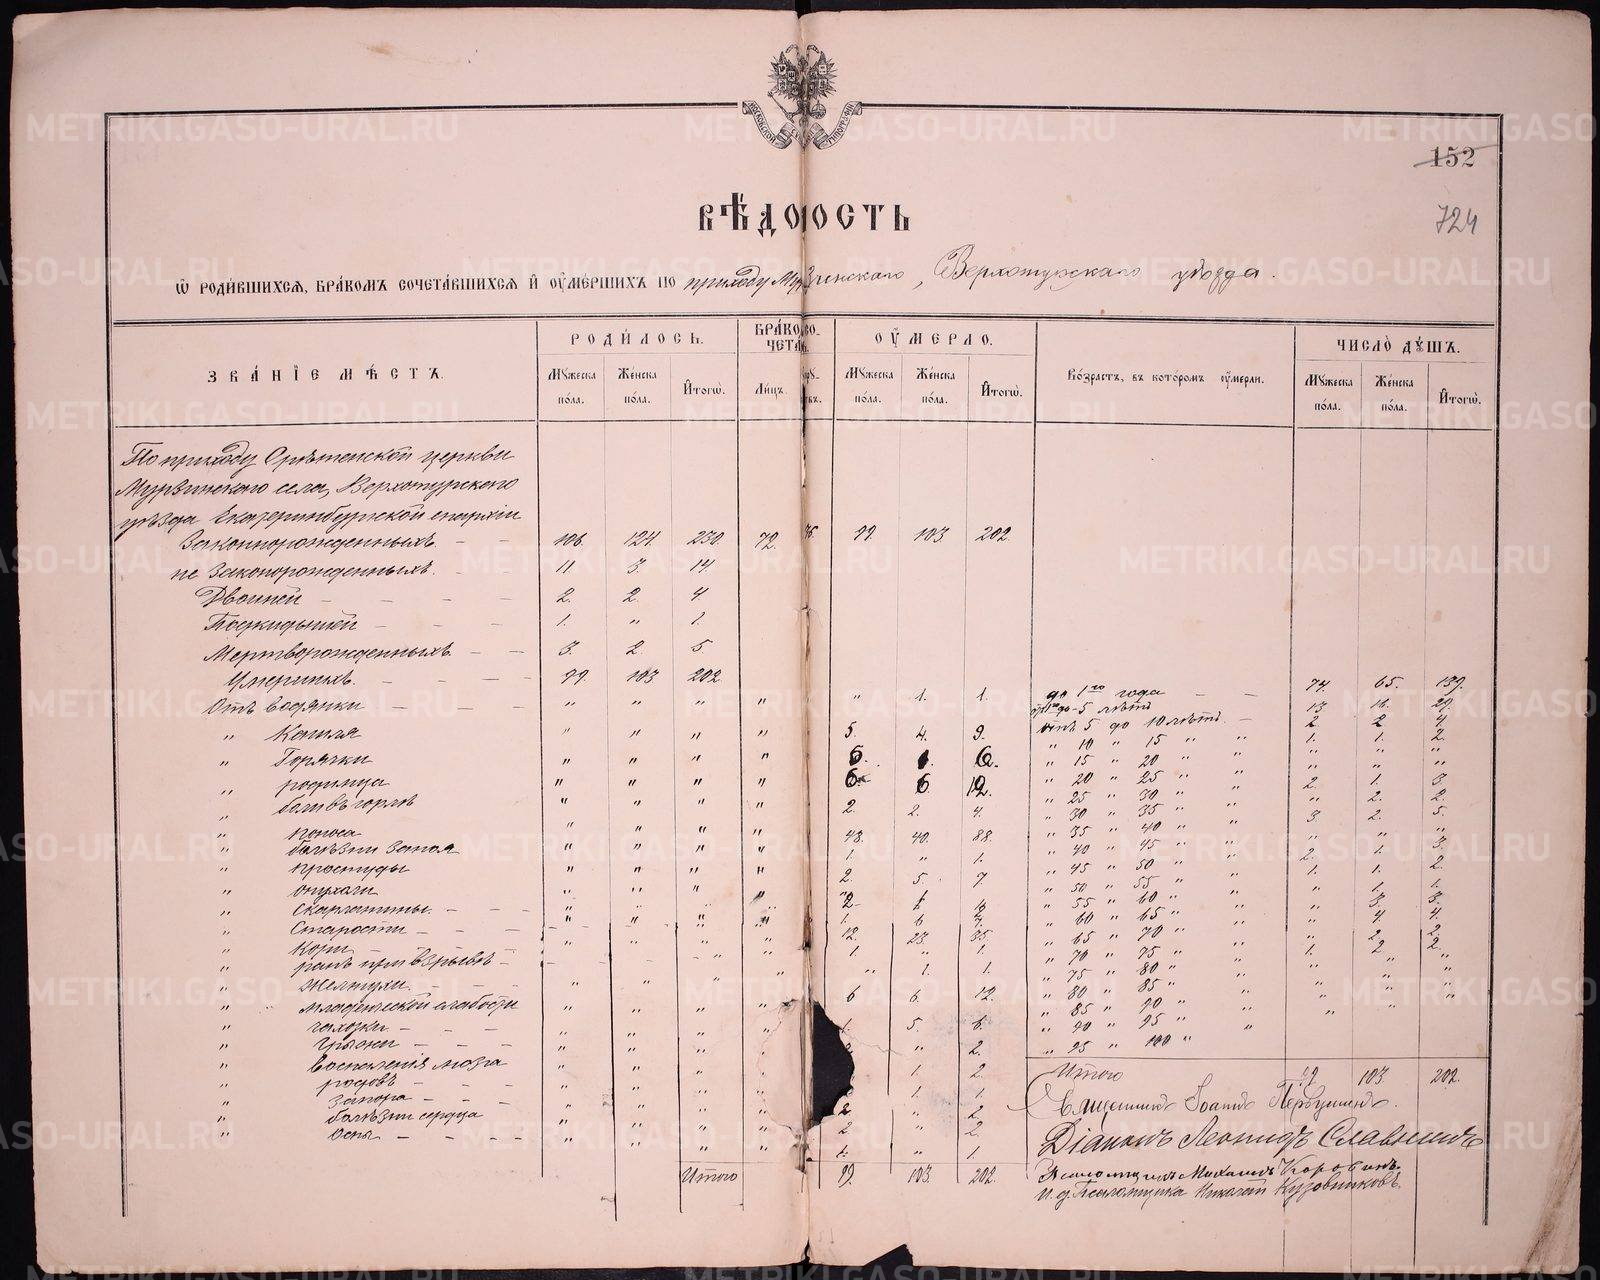 МОСКОВСКОЙ СѴНОД. ТИПОГРАФІИ
152
724
ВѢДОМОСТЬ
Ѡ РОДИВШИХСЯ, БРАКОМЪ СОЧЕТАВШИХСЯ И ОУМЕРШИХЪ ПО приходу Мурзинскаго, Верхотурскаго уѣзда.
ЗВАНІЕ МѢСТЪ. РОДИЛОСЬ. БРАКОСО-ЧЕТАВ. ОУМЕРЛО. Возрастъ, въ которомъ оумерли. ЧИСЛО ДУШЪ.
Мужеска пола. Женска пола. Итогѡ. Лицъ. Мужеска пола. Женска пола. Итогѡ. Мужеска пола. Женска пола. Итогѡ.
По приходу Срѣтенской церкви
Мурзинскаго села, Верхотурскаго
уѣзда Екатеринбургской епархіи
Законнорожденныхъ. 106. 124. 230. 72. 99. 103. 202.
не Законорожденныхъ. 11 3. 14.
Двойней 2. 2. 4
Подкидышей 1. " 1.
Мертворожденныхъ. 3. 2. 5.
Умершихъ. 99. 103 202.
Отъ водянки " " " " " 1. 1.
" Кашля " " " " 5. 4. 9.
" Горячки " " " "
" родимца " " " " 6 6 12.
" боли въ горлѣ " " " " 2. 2. 4.
" Поноса " " " " 48. 40. 88.
" болѣзни запоя " " " " 1. " 1.
" простуды " " " " 2. 5. 7.
" опухоли
" Скарлатины.
" Старости 12. 23. 35.
" Кори 1. " 1.
" ранъ при взрывѣ " 1. 1.
" Желтухи. 6 6. 12.
" младенческой слабости
" чахотки. 1. 5. 6.
" Грыжи " 2.
" воспаленія мозга 1. 2.
" родовъ 1. 1.
" запора 2 " 2
" болѣзни сердца 2 " 2.
" Оспы 1. " 1.
Итого 99. 103. 202.
до 1го года 74. 65. 139.
до 5 лѣтъ 13. 16. 29.
отъ 5 до 10 лѣтъ. 2. 2 4.
" 10 " 15 " " 1. 1. 2.
" 15 " 20 " " " " "
" 20 " 25 " " 2. 1. 3
" 25 " 30 " " " 2. 2.
" 30 " 35 " " 3. 2. 5.
" 35 " 40 " " " " "
" 40 " 45 " " 2. 1. 3.
" 45 " 50 " " 1. 1. 2.
" 50 " 55 " " " 1. 1.
" 55 " 60 " " " 3. 3.
" 60 " 65 " " " 4. 4.
" 65 " 70 " " " 2. 2.
" 70 " 75 " " 1. 2 2.
" 75 " 80 " " " " "
" 80 " 85 " " " " "
" 85 " 90 " "
" 90 " 95 " "
" 95 " 100 "
Итого 99 103 202.
Священникъ Іоаннъ Первушинъ.
Діаконъ Леонидъ Славнинъ
Псаломщикъ Михаилъ Коровинъ.
И. д. Псаломщика Николай Кузовниковъ.
METRIKI.GASO-URAL.RU